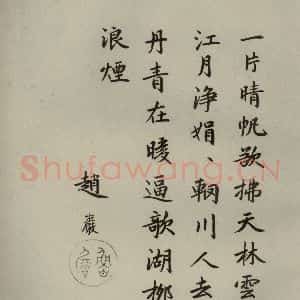 一片晴帆欲拂天林雲
江月淨娟 輞川人去
丹青在逼歌湖柳
浪煙
趙巖
ShufaWang.CN